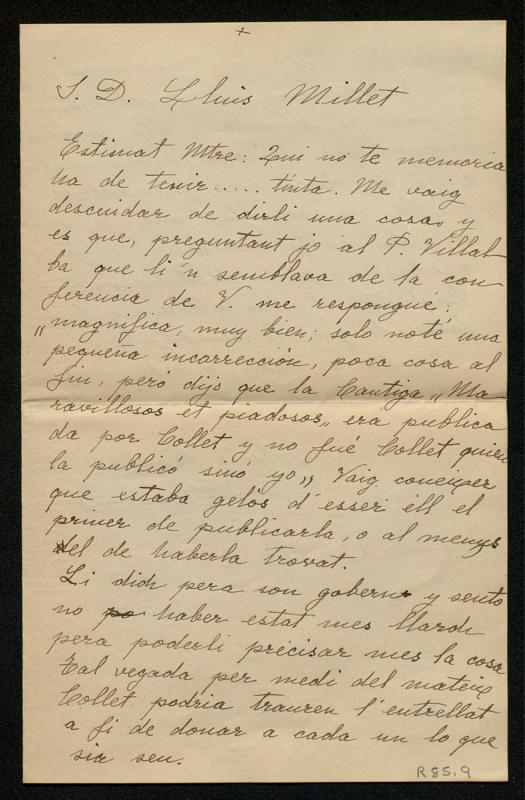 +
S. D. Lluis Millet
Estimat Mtre: Qui no te memoria
ha de tenir..... tinta. Me vaig
descuidar de dirli una cosa, y
es que, preguntant jo al P. Villal
ba que li 'n semblava de la con
ferencia de V. me respongué:
„magnifica, muy bien; solo noté una
pequeña incorrección, poca cosa al
fin, peró dijo que la Cantiga „Ma-
ravillosos et piadosos„ era publica
da por Collet y no fué Collet quien
la publicó sinó yo„ Vaig coneixer
que estaba gelós d'esser ell el
primer de publicarla, o al menys
del de haberla trovat.
Li dich pera son gobern y sento
no haber estat mes llarch
pera poderli precisar mes la cosa
Tal vegada per medi del mateix
Collet podria trauren l'entrellat
a fi de donar a cada un lo que
sia seu.
R 85.9